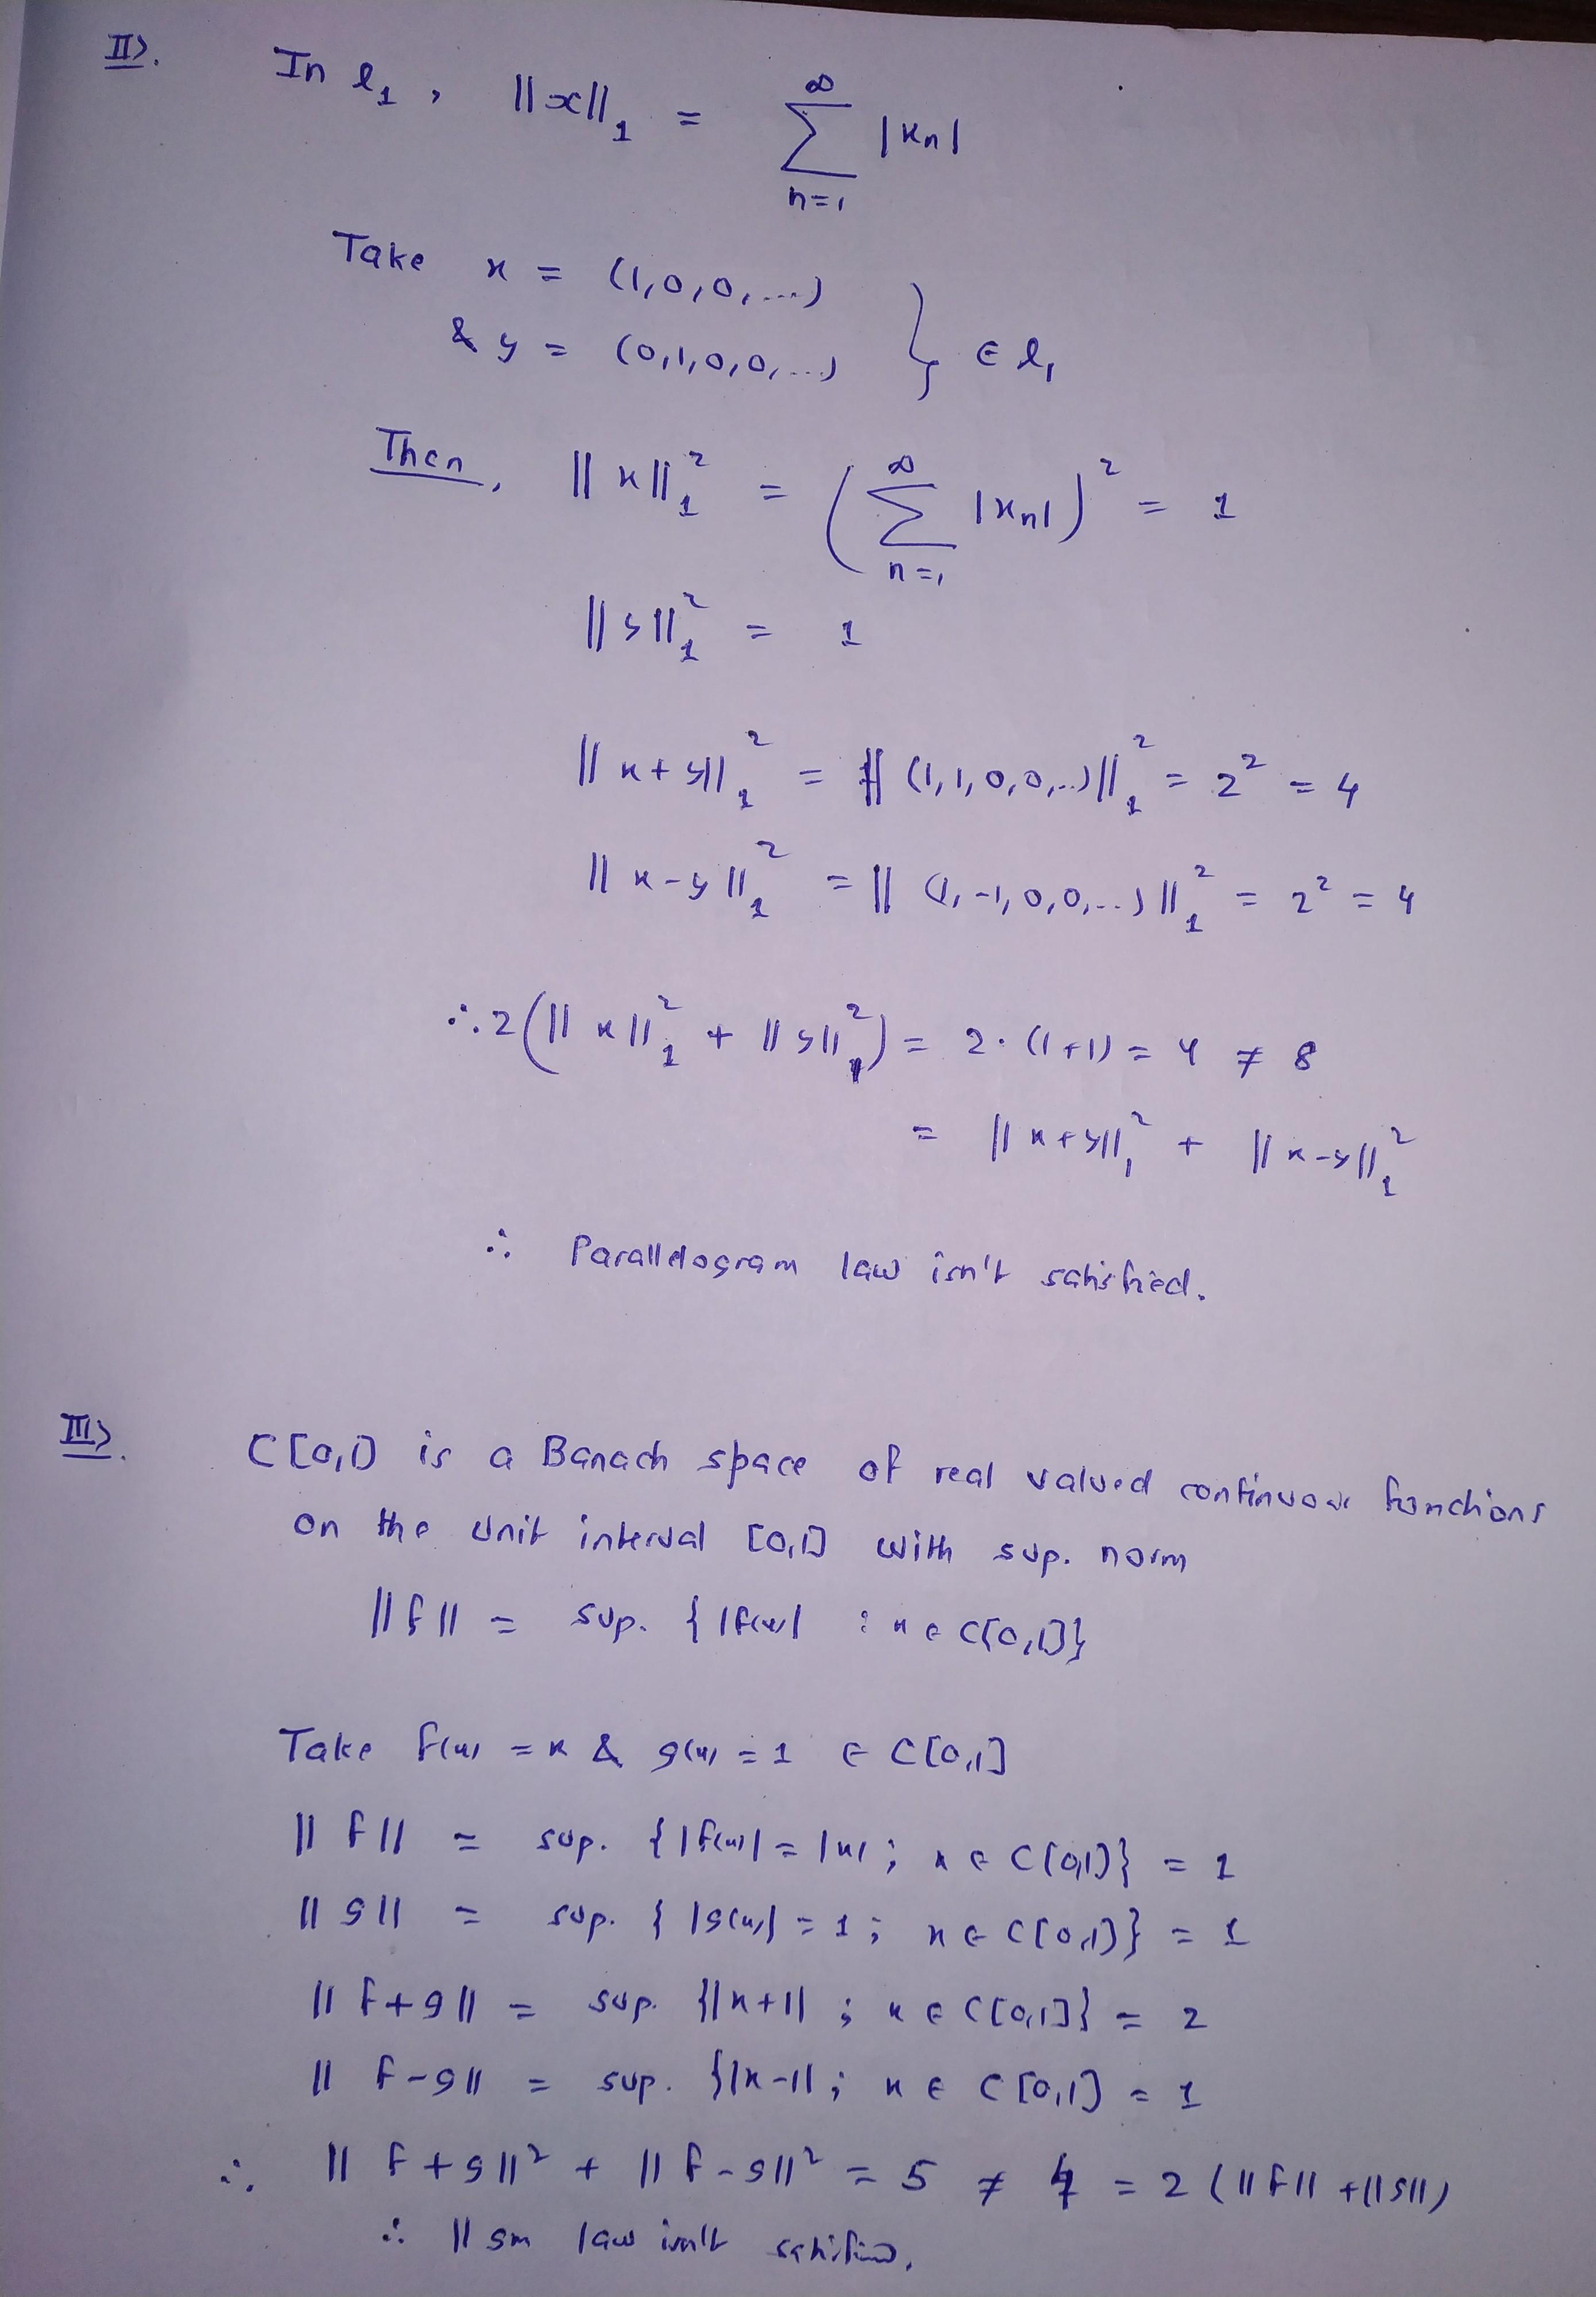 II>. In l₁, ||x||₁ = ∑_{n=1}^{∞} |xₙ|
Take x = (1,0,0,...)
& y = (0,1,0,0,...) } ∈ l₁
Then, ||x||₁² = (∑_{n=1}^{∞} |xₙ|)² = 1
||y||₁² = 1
||x+y||₁² = ||(1,1,0,0,..)||₁² = 2² = 4
||x-y||₁² = ||(1,-1,0,0,...)||₁² = 2² = 4
∴ 2(||x||₁² + ||y||₁²) = 2·(1+1) = 4 ≠ 8
= ||x+y||₁² + ||x-y||₁²
∴ Parallelogram law isn't satisfied.
III>. C[0,1] is a Banach space of real valued continuous functions
on the unit interval [0,1] with sup. norm
||f|| = sup. {|f(x)| : x ∈ C[0,1]}
Take f(x) = x & g(x) = 1 ∈ C[0,1]
||f|| = sup. {|f(x)| = |x| ; x ∈ C[0,1]} = 1
||g|| = sup. {|g(x)| = 1 ; x ∈ C[0,1]} = 1
||f+g|| = sup. {|x+1| ; x ∈ C[0,1]} = 2
||f-g|| = sup. {|x-1| ; x ∈ C[0,1] = 1
∴ ||f+g||² + ||f-g||² = 5 ≠ 4 = 2(||f|| + ||g||)
∴ ||gm law isn't satisfied.